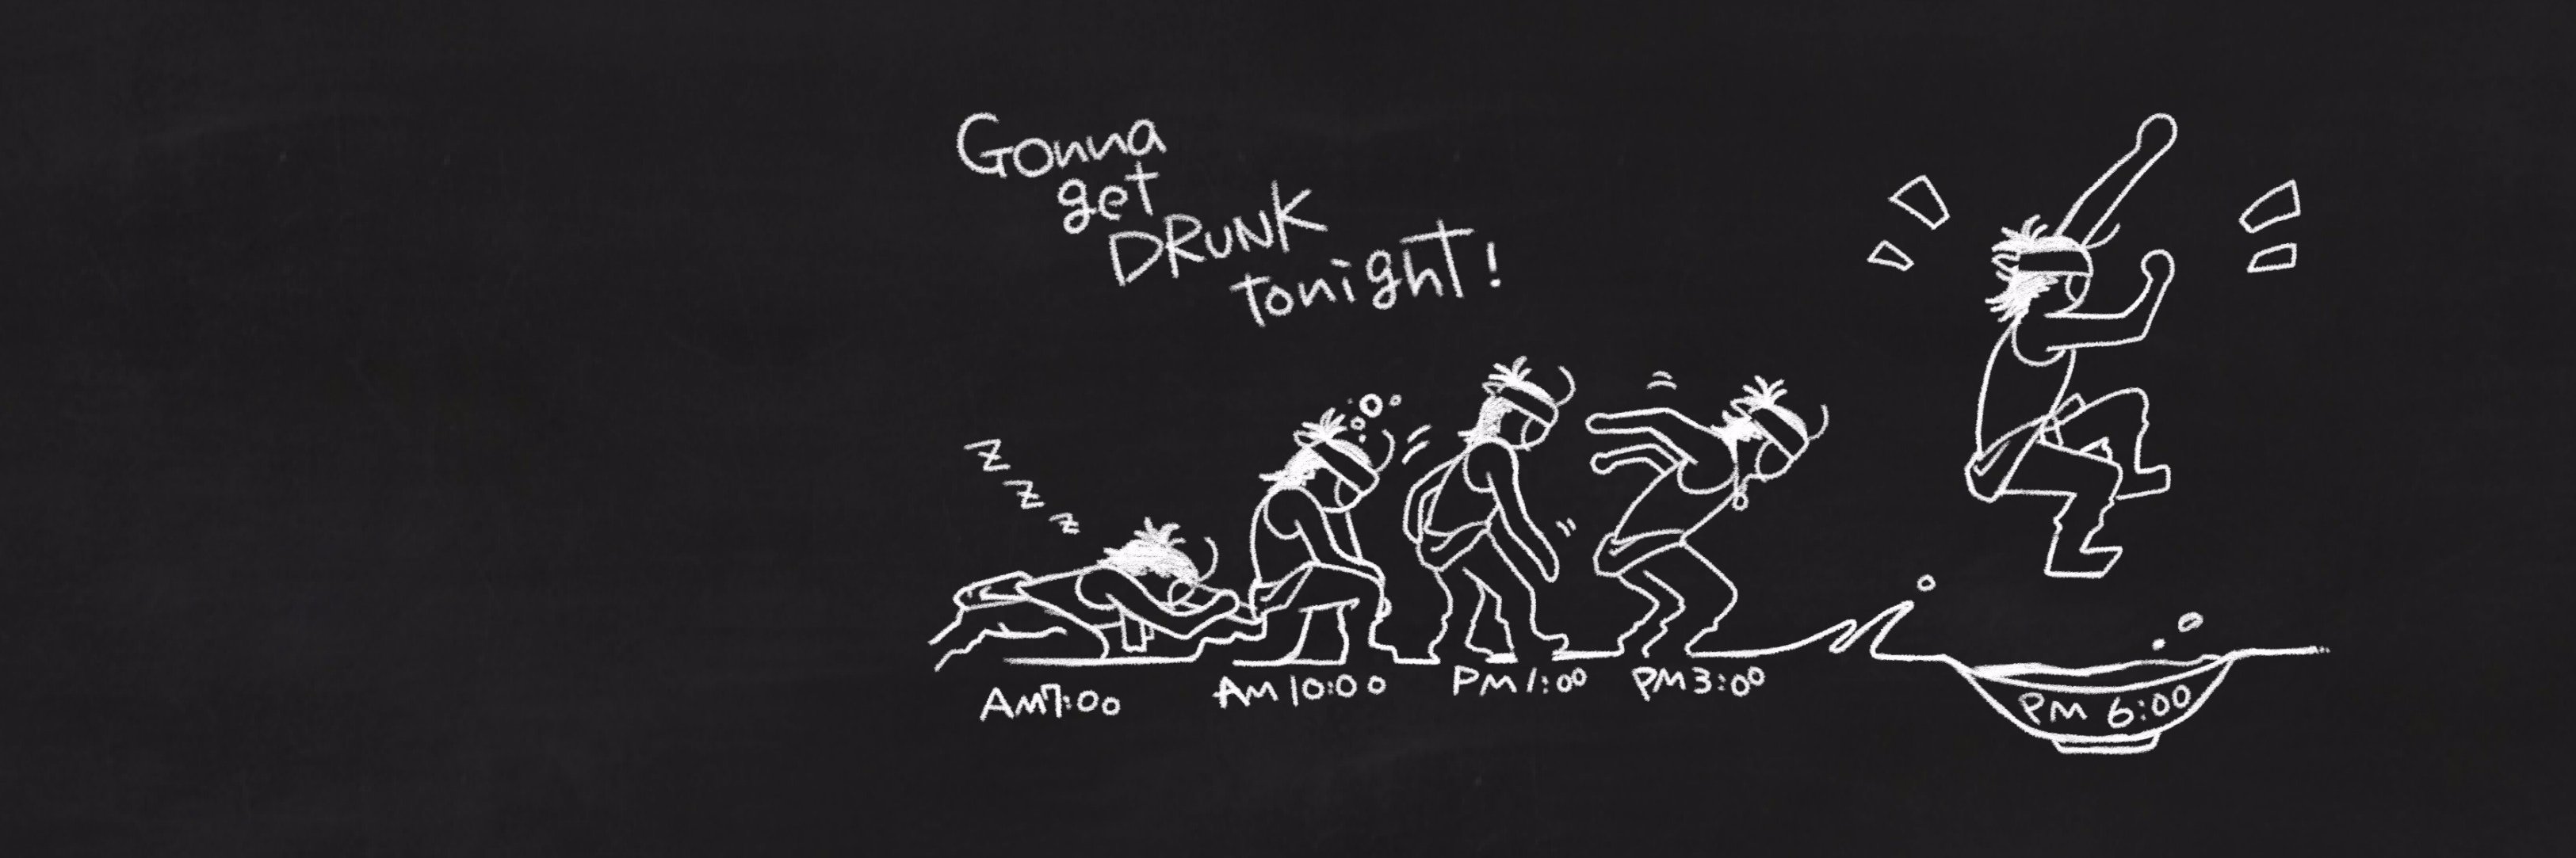 Gonna
get
DRUNK
tonight!
z
z
z
AM7:00
AM 10:00
PM 1:00
PM 3:00
PM 6:00